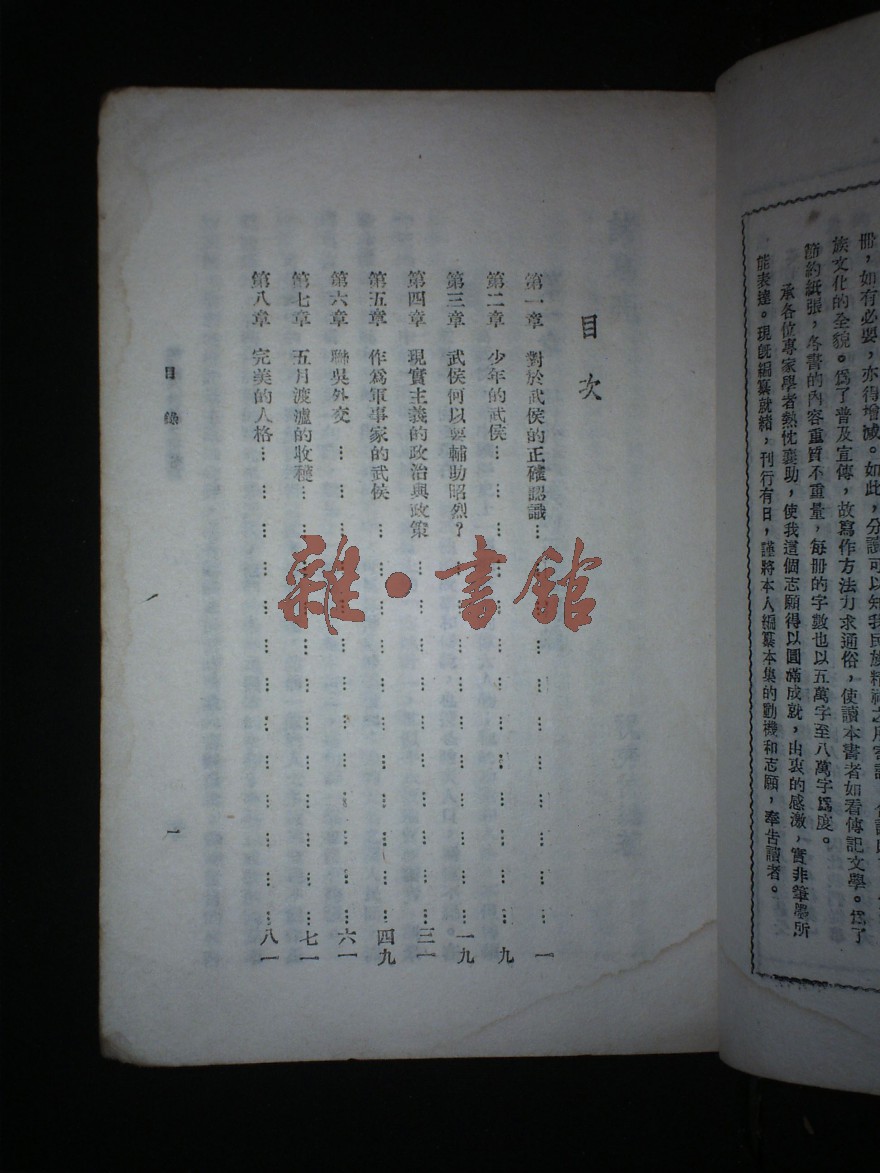 冊，如有必要，亦得增減。如此，分讀可以知我民族精神之所寄託，
族文化的全貌。爲了普及宣傳，故寫作方法力求通俗，使讀本書者如看傳記文學。爲了
節約紙張，各書的內容重質不重量，每冊的字數也以五萬字至八萬字爲度。
承各位專家學者熱忱襄助，使我這個志願得以圓滿成就，由衷的感激，實非筆墨所
能表達。現旣編纂就緒，刊行有日，謹將本人編纂本集的動機和志願，奉告讀者。
目次
第一章 對於武侯的正確認識…………一
第二章 少年的武侯…………九
第三章 武侯何以要輔助昭烈？…………一九
第四章 現實主義的政治與政策…………三一
第五章 作爲軍事家的武侯…………四九
第六章 聯吳外交…………六一
第七章 五月渡瀘的收穫…………七一
第八章 完美的人格…………八一
目錄
一
雜·書館